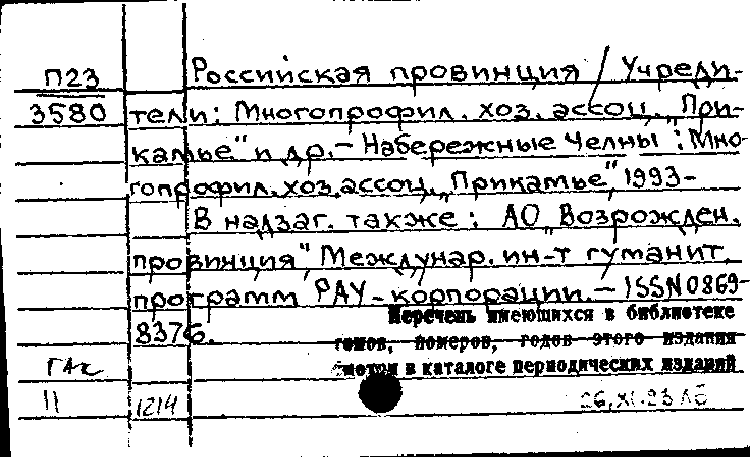 П23
3580
Российская провинция / Учреди-
тели: Многопрофил. хоз. ассоц. „При-
камье" и др. - Набережные Челны : Мно-
гопрофил. хоз. ассоц. „Прикамье", 1993-
В надзаг. также: АО „Возрожден.
провинция", Междунар. ин-т гуманит.
программ РАУ-корпорации. - ISSN 0869-
8376.
Перечень имеющихся в библиотеке
томов, номеров, годов этого издания
смотри в каталоге периодических изданий
11
1214